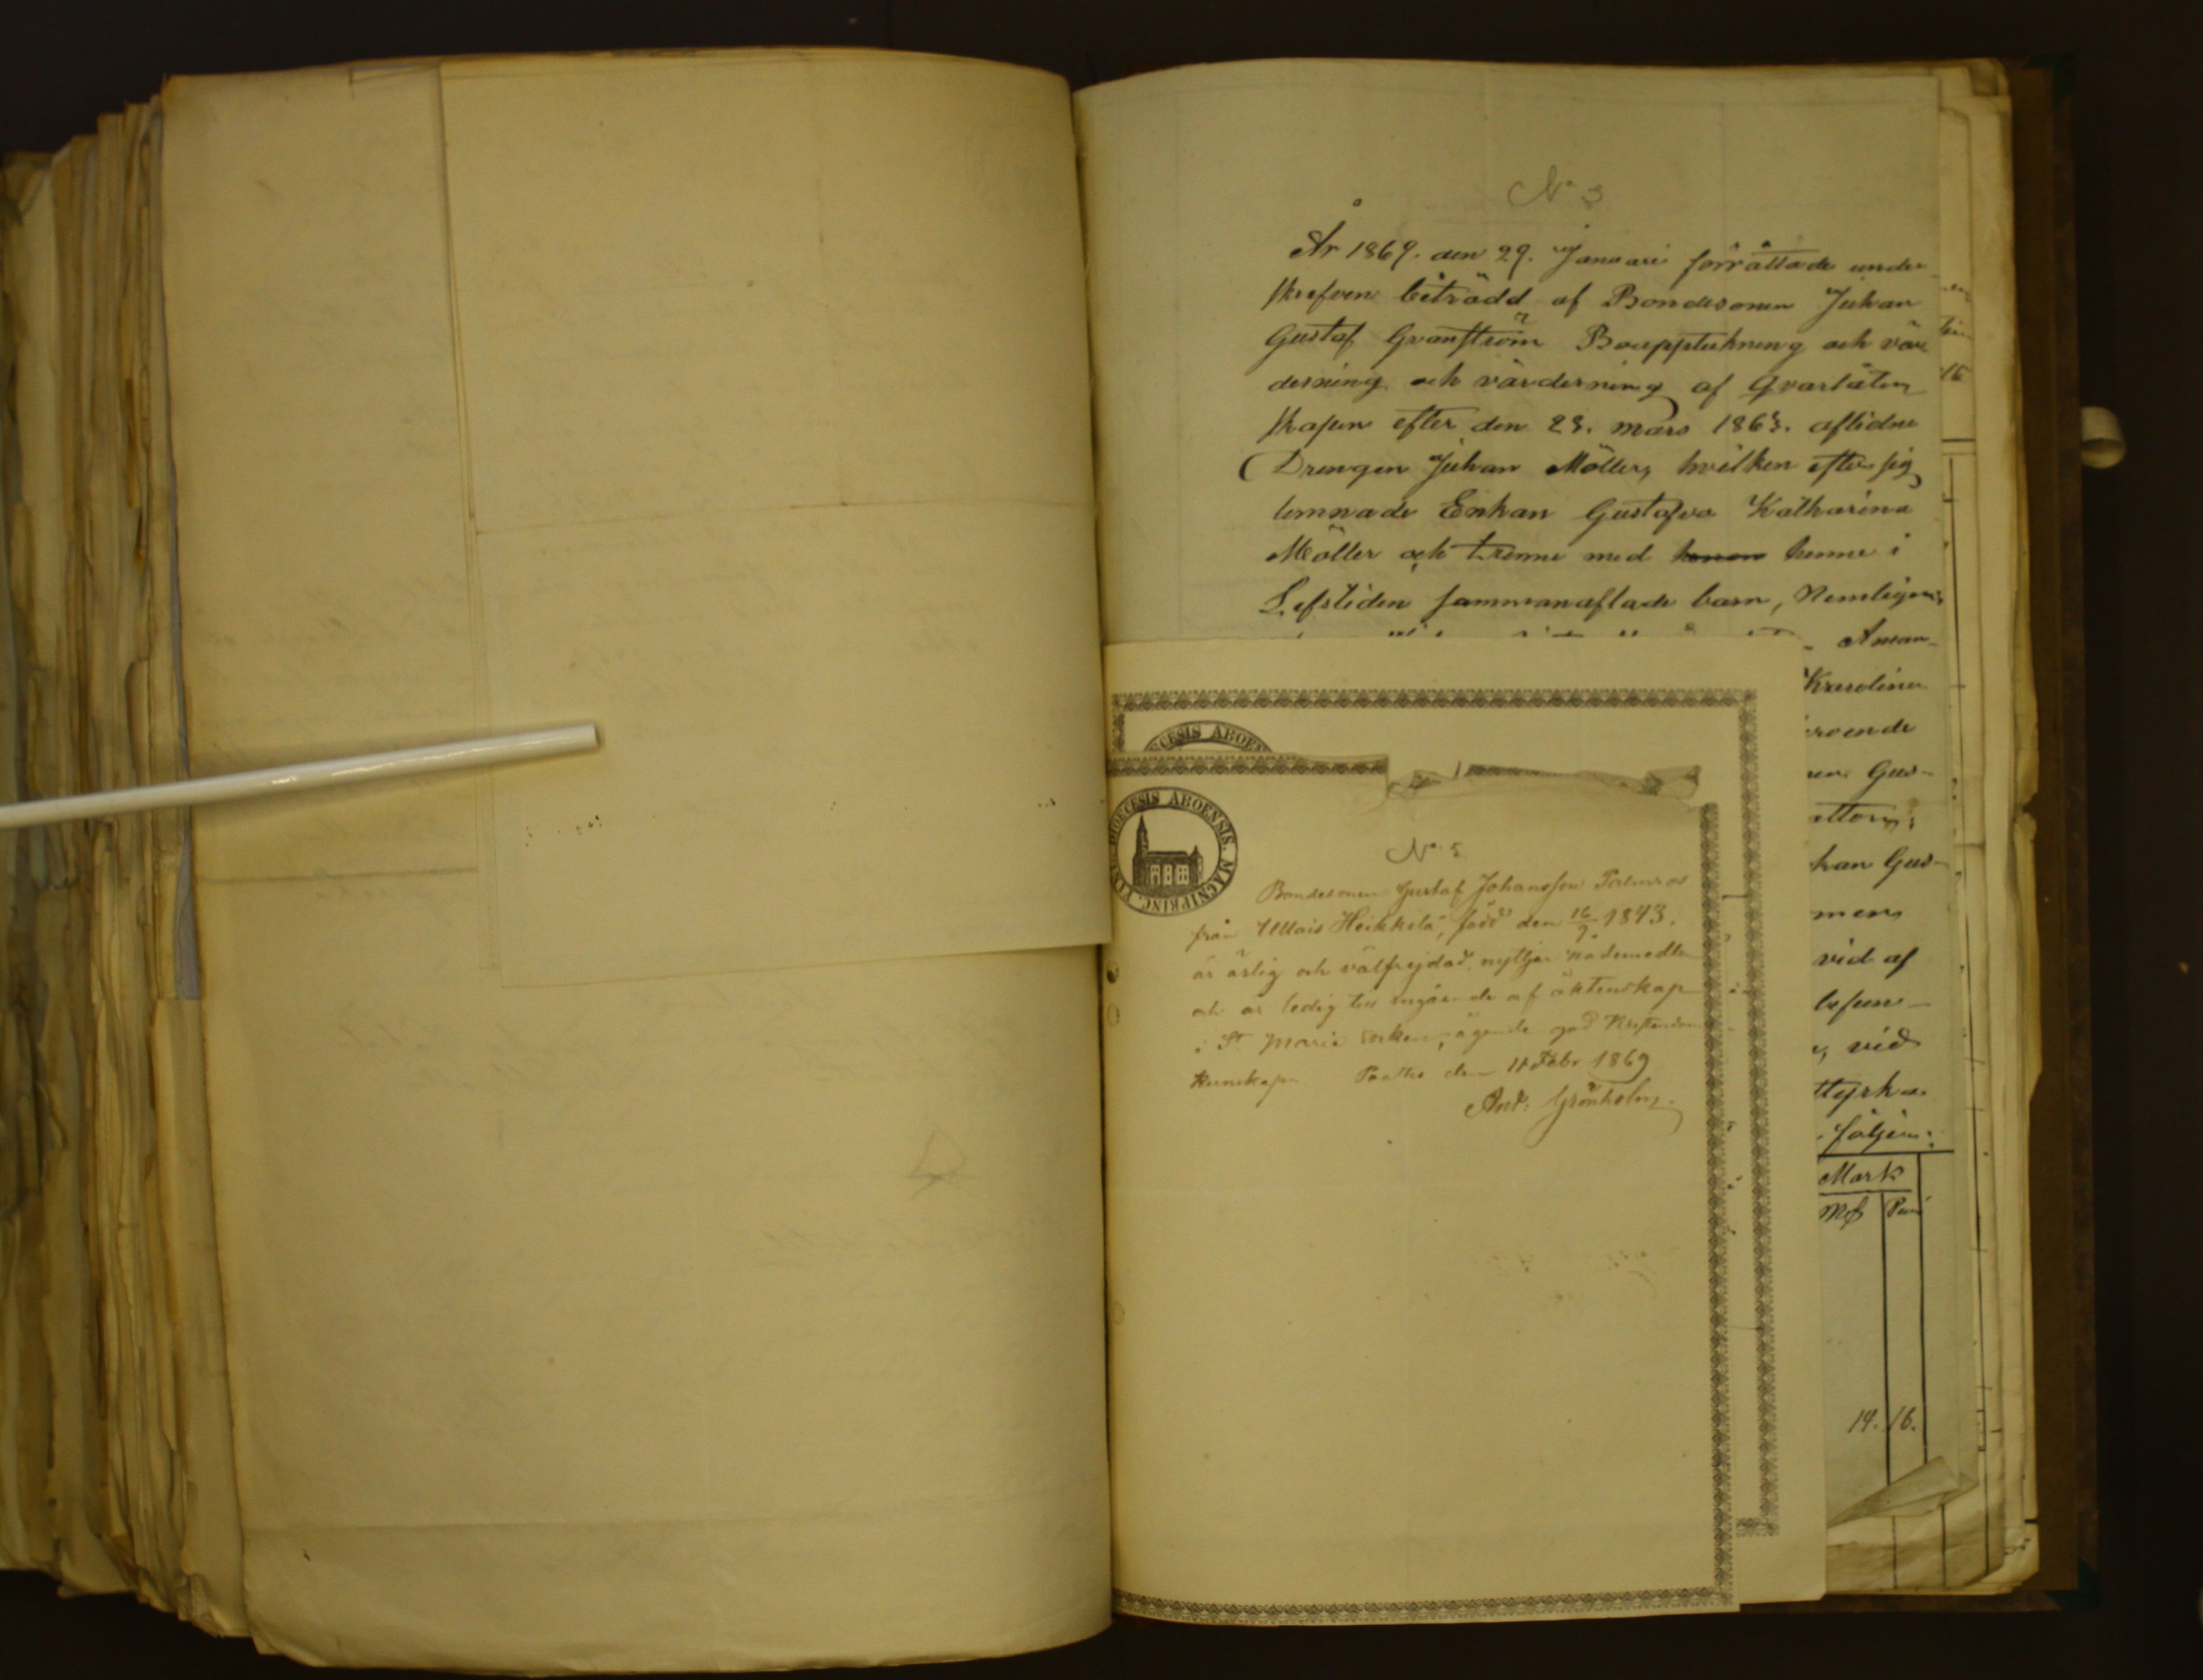 N° 3
År 1869. den 29. Januari förrättade under-
skrefven biträdd af Bondesonen Juhan
Gustaf Granström Bouppteckning och vär
dering och värdering af Qvarlåten
skapen efter den 23. mars 1863. aflidne
Drengen Juhan Möller, hvilken efter sig
lemnade Enkan Gustafva Katharina
Möller och trenne med henne i
Lifstiden sammanaflade barn, Nemligen:
Aman-
Karolina
roende
Gus-
han Gus-
men
vid af
befun-
vid
styrka
följer:
Mark
Mf Pen
14. 16.
DIOECESIS ABOEN
DIOECESIS ABOENSIS. MAGNIPRINC.
N° 5.
Bondesonen Gustaf Johansson Palmros
från Ullais Heikkilä, född den 16/9 1843.
är ärlig och välfrejdad, nyttjar nådemedlen
och är ledig till ingående af äktenskap
i St Marie socken, ägende god Kristendoms
kunskap. Paattis den 11 Febr 1869
And: Grönholm.